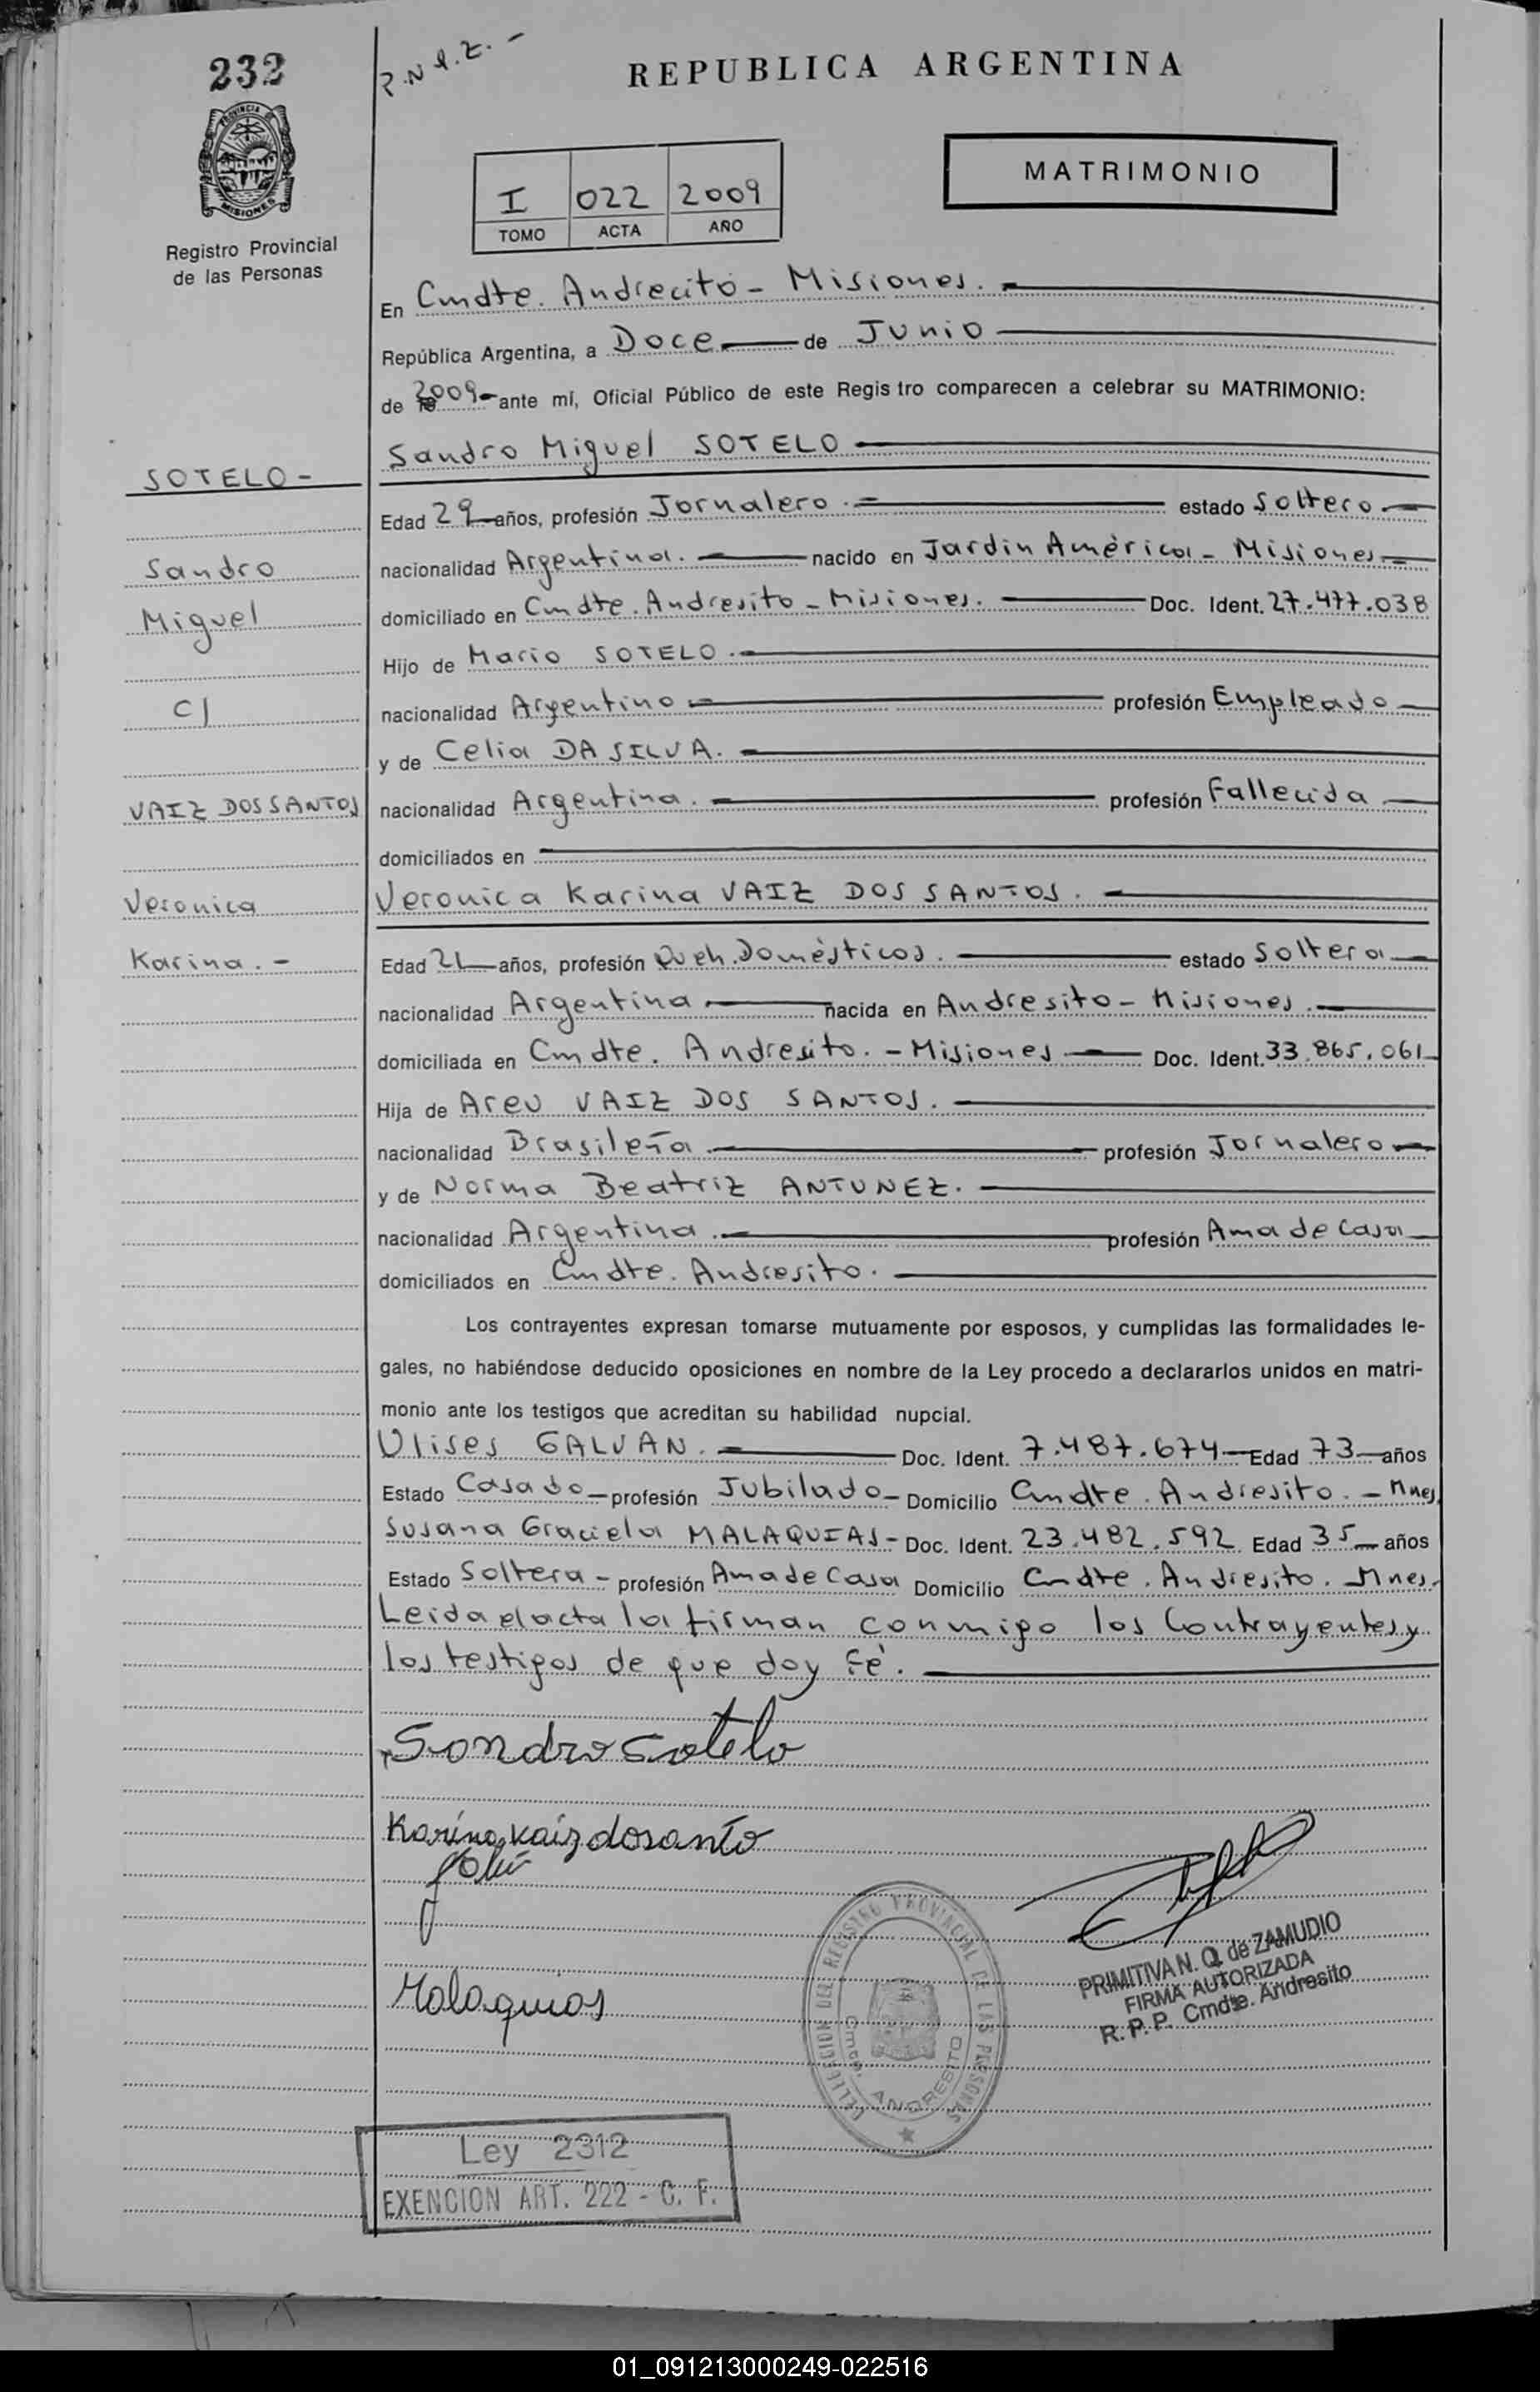 232
R.N.I.Z. -
REPUBLICA ARGENTINA
PROVINCIA DE
MISIONES
Registro Provincial
de las Personas
I 022 2009
TOMO ACTA AÑO
MATRIMONIO
En Cmdte. Andrecito - Misiones.
República Argentina, a Doce de Junio
de 2009 ante mí, Oficial Público de este Regis tro comparecen a celebrar su MATRIMONIO:
SOTELO -
Sandro
Miguel
C/
VAIZ DOS SANTOS
Veronica
Karina. -
Sandro Miguel SOTELO
Edad 29 años, profesión Jornalero. estado Soltero
nacionalidad Argentina. nacido en Jardin América - Misiones
domiciliado en Cmdte. Andresito - Misiones. Doc. Ident. 27.477.038
Hijo de Mario SOTELO.
nacionalidad Argentino profesión Empleado
y de Celia DA SILVA.
nacionalidad Argentina. profesión Fallecida
domiciliados en
Veronica Karina VAIZ DOS SANTOS.
Edad 21 años, profesión Queh. Domésticos. estado Soltera
nacionalidad Argentina nacida en Andresito - Misiones.
domiciliada en Cmdte. Andresito. - Misiones Doc. Ident. 33.865.061
Hija de Areu VAIZ DOS SANTOS.
nacionalidad Brasileña profesión Jornalero
y de Norma Beatriz ANTUNEZ.
nacionalidad Argentina. profesión Ama de Casa
domiciliados en Cmdte. Andresito.
Los contrayentes expresan tomarse mutuamente por esposos, y cumplidas las formalidades le-
gales, no habiéndose deducido oposiciones en nombre de la Ley procedo a declararlos unidos en matri-
monio ante los testigos que acreditan su habilidad nupcial.
Ulises GALVAN. Doc. Ident. 7.487.674 Edad 73 años
Estado Casado profesión Jubilado - Domicilio Cmdte. Andresito. - Mnes.
Susana Graciela MALAQUIAS - Doc. Ident. 23.482.592 Edad 35 años
Estado Soltera - profesión Ama de Casa Domicilio Cmdte. Andresito. Mnes.
Leida el acta la firman conmigo los Contrayentes y
los testigos de que doy Fé.
Sandro Sotelo
Karina vaiz dosanto
Malaquias
DELEGACION DEL REGISTRO PROVINCIAL DE LAS PERSONAS
Cmdte. ANDRESITO
PRIMITIVA N. Q. de ZAMUDIO
FIRMA AUTORIZADA
R. P. P. Cmdte. Andresito
Ley 2312
EXENCION ART. 222 - C. F.
01_091213000249-022516